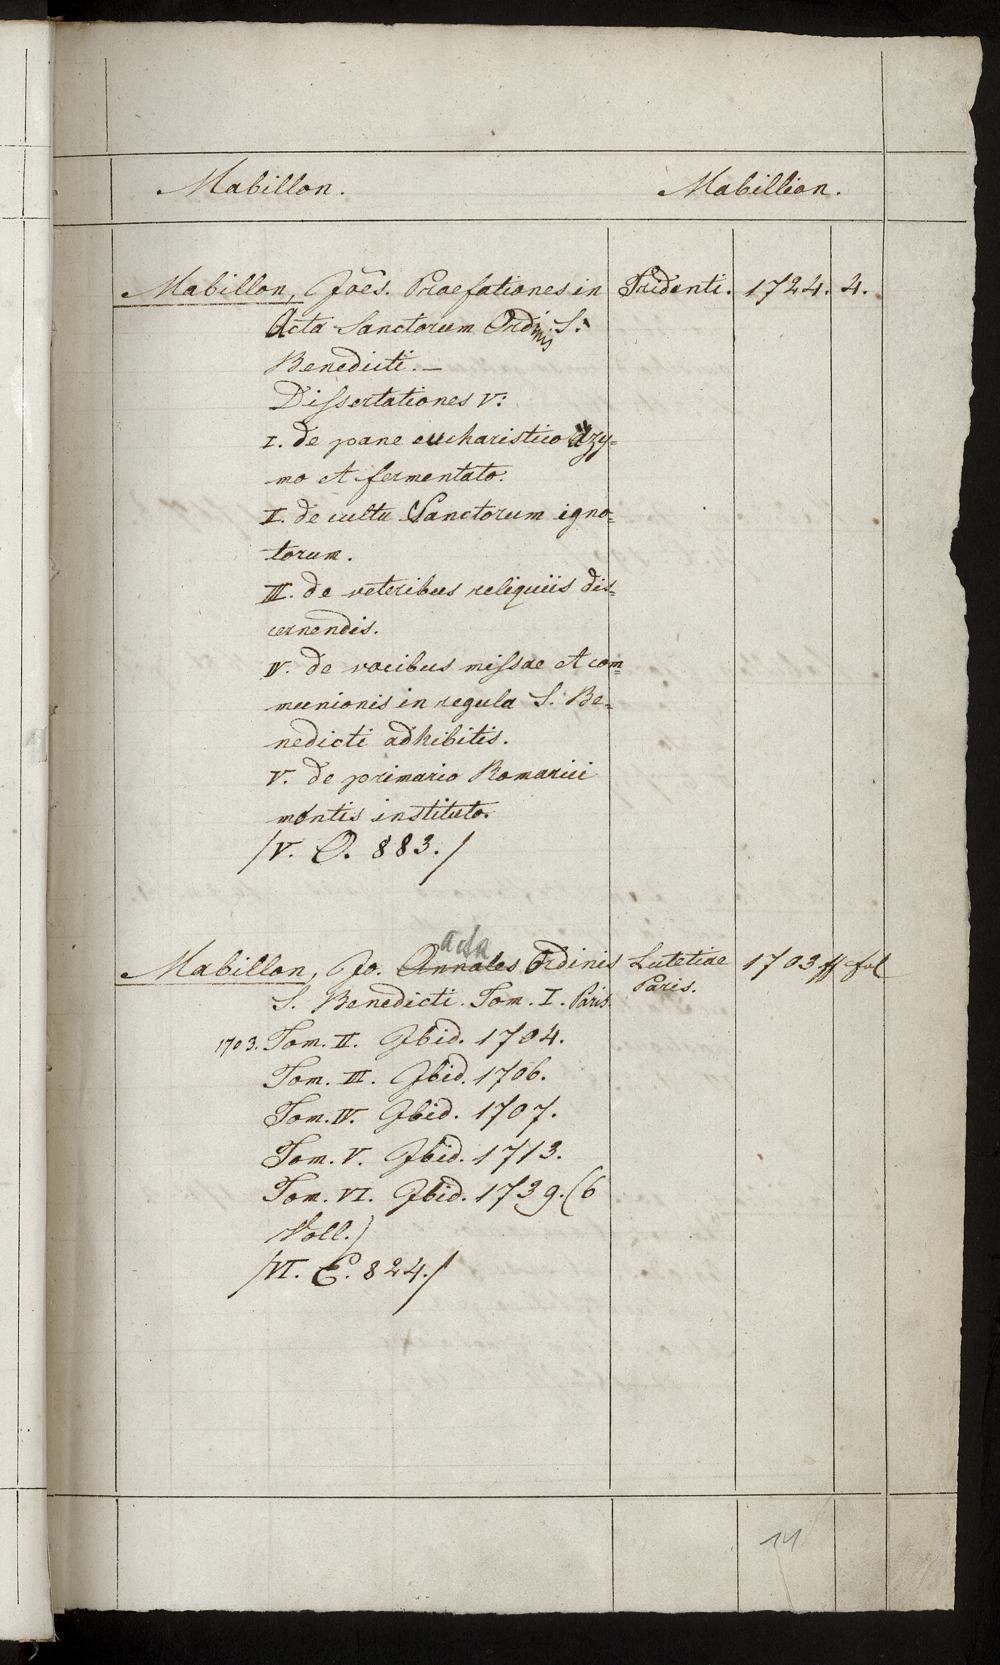 Mabillon. Mabillion.
Mabillon, Joēs. Praefationes in Tridenti. 1724. 4.
Acta Sanctorum Ordinis S.
Benedicti. –
Dissertationes V:
I. de pane eucharistico azy=
mo et fermentato.
II. de cultu Sanctorum igno=
torum.
III. de veteribus reliquiis dis=
cernendis.
IV. de vocibus missae et com=
munionis in regula S. Be=
nedicti adhibitis.
V. de primario Romarici
montis instituto.
/V. O. 883./
acta
Mabillon, Jo. Annales Ordinis Lutetiae 1703 ff fol
Paris.
S. Benedicti. Tom. I. Paris
1703. Tom. II. Ibid. 1704.
Tom. III. Ibid. 1706.
Tom. IV. Ibid. 1707.
Tom. V. Ibid. 1713.
Tom. VI. Ibid. 1739. (6
Voll.)
/VI. E. 824./